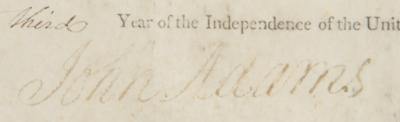 third Year of the Independence of the Unit
John Adams